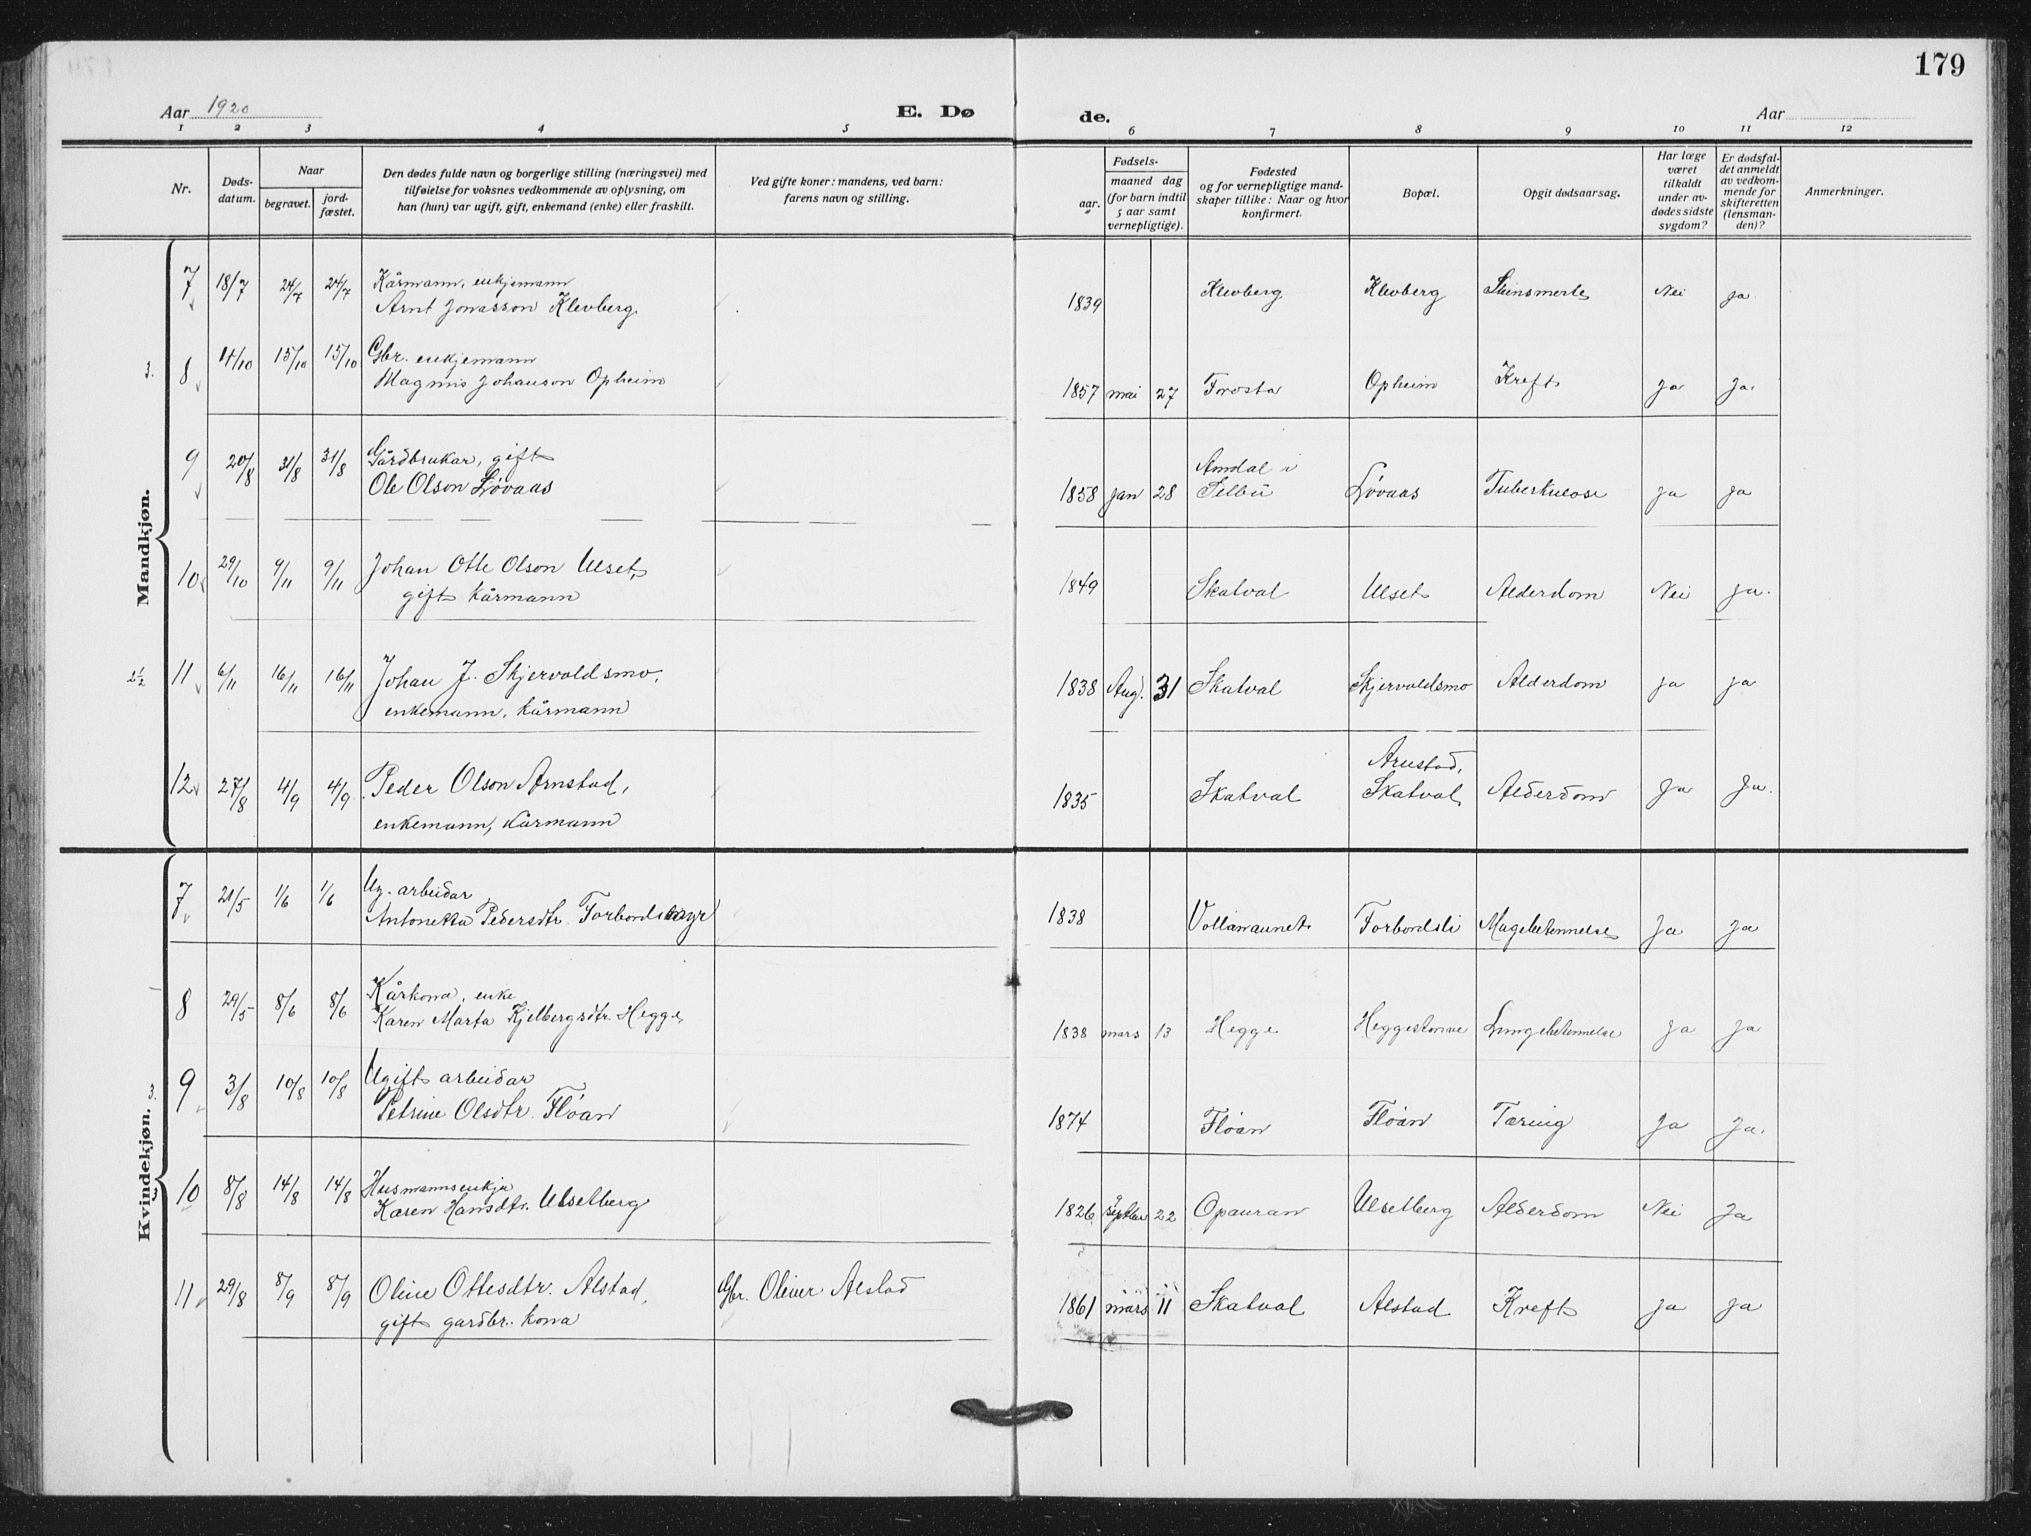 179
Aar 1920
E. Dø
de.
Aar
1 2 3 4 5 6 7 8 9 10 11 12
Nr.
Døds-
datum.
Naar
begravet.
jord-
fæstet.
Den dødes fulde navn og borgerlige stilling (næringsvei) med
tilføielse for voksnes vedkommende av oplysning, om
han (hun) var ugift, gift, enkemand (enke) eller fraskilt.
Ved gifte koner: mandens, ved barn:
farens navn og stilling.
Fødsels-
aar.
maaned dag
(for barn indtil
5 aar samt
vernepligtige).
Fødested
og for vernepligtige mand-
skaper tillike: Naar og hvor
konfirmert.
Bopæl.
Opgit dødsaarsag.
Har læge
været
tilkaldt
under av-
dødes sidste
sygdom?
Er dødsfal-
det anmeldt
av vedkom-
mende for
skifteretten
(lensman-
den)?
Anmerkninger.
Mandkjøn.
7 18/7 24/7 24/7 Kårmann, enkjemann
Arnt Jonasson Klevberg 1839 Klevberg Klevberg Nei Ja
3. 8 11/10 15/10 15/10 Gbr. enkjemann
Magnus Johanson Opheim 1857 mai 27 Frosta Opheim Kreft Ja Ja.
9 20/8 31/8 31/8 Gårdbrukar, gift
Ole Olson Løvaas 1858 jan 28 Selbu Løvaas Tuberkulose Ja Ja
10 29/10 9/11 9/11 Johan Otte Olson Ulset,
gift kårmann 1849 Skatval Ulset Alderdom Nei Ja.
2½ 11 6/11 16/11 16/11 Johan J. Skjervoldsmo,
enkemann, kårmann 1838 Aug. 31 Skatval Skjervoldsmo Alderdom Ja Ja
12 27/8 4/9 4/9 Peder Olson Arnstad,
enkemann, kårmann 1835 Skatval Arnstad,
Skatval Alderdom Ja Ja.
Kvindekjøn.
7 21/5 1/6 1/6 Ug. arbeidar
Antonetta Pedersdtr. 1838 Vollamaunet Forbordsli Magebetennelse Ja Ja
8 29/5 8/6 8/6 Kårkona, enke
Karen Marta Kjelbergsdtr. Hegge 1838 mars 13 Hegge Lungebetennelse Ja Ja
3. 9 3/8 10/8 10/8 Ugift arbeidar
Petrine Olsdtr. Fløan 1874 Fløan Fløan Tæring Ja Ja.
3 10 8/8 14/8 14/8 Husmannsenkja
Karen Hansdtr. Ulsetberg 1826 22 Opauran Ulsetberg Alderdom Nei Ja
11 29/8 8/9 8/9 Oline Ottesdtr. Alstad,
gift gardbr. kona Gbr. Oliver Alstad 1861 mars 11 Skatval Alstad Kreft Ja Ja